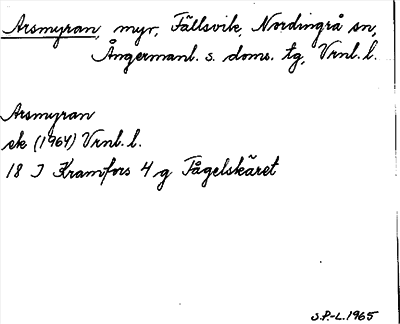 Arsmyran, myr, Fällsvik, Nordingrå sn,
Ångermanl. s. doms. tg, Vrnl. l.
Arsmyran
ek (1964) Vrnl. l.
18 J Kramfors 4 g Fågelskäret
S.P.-L. 1965